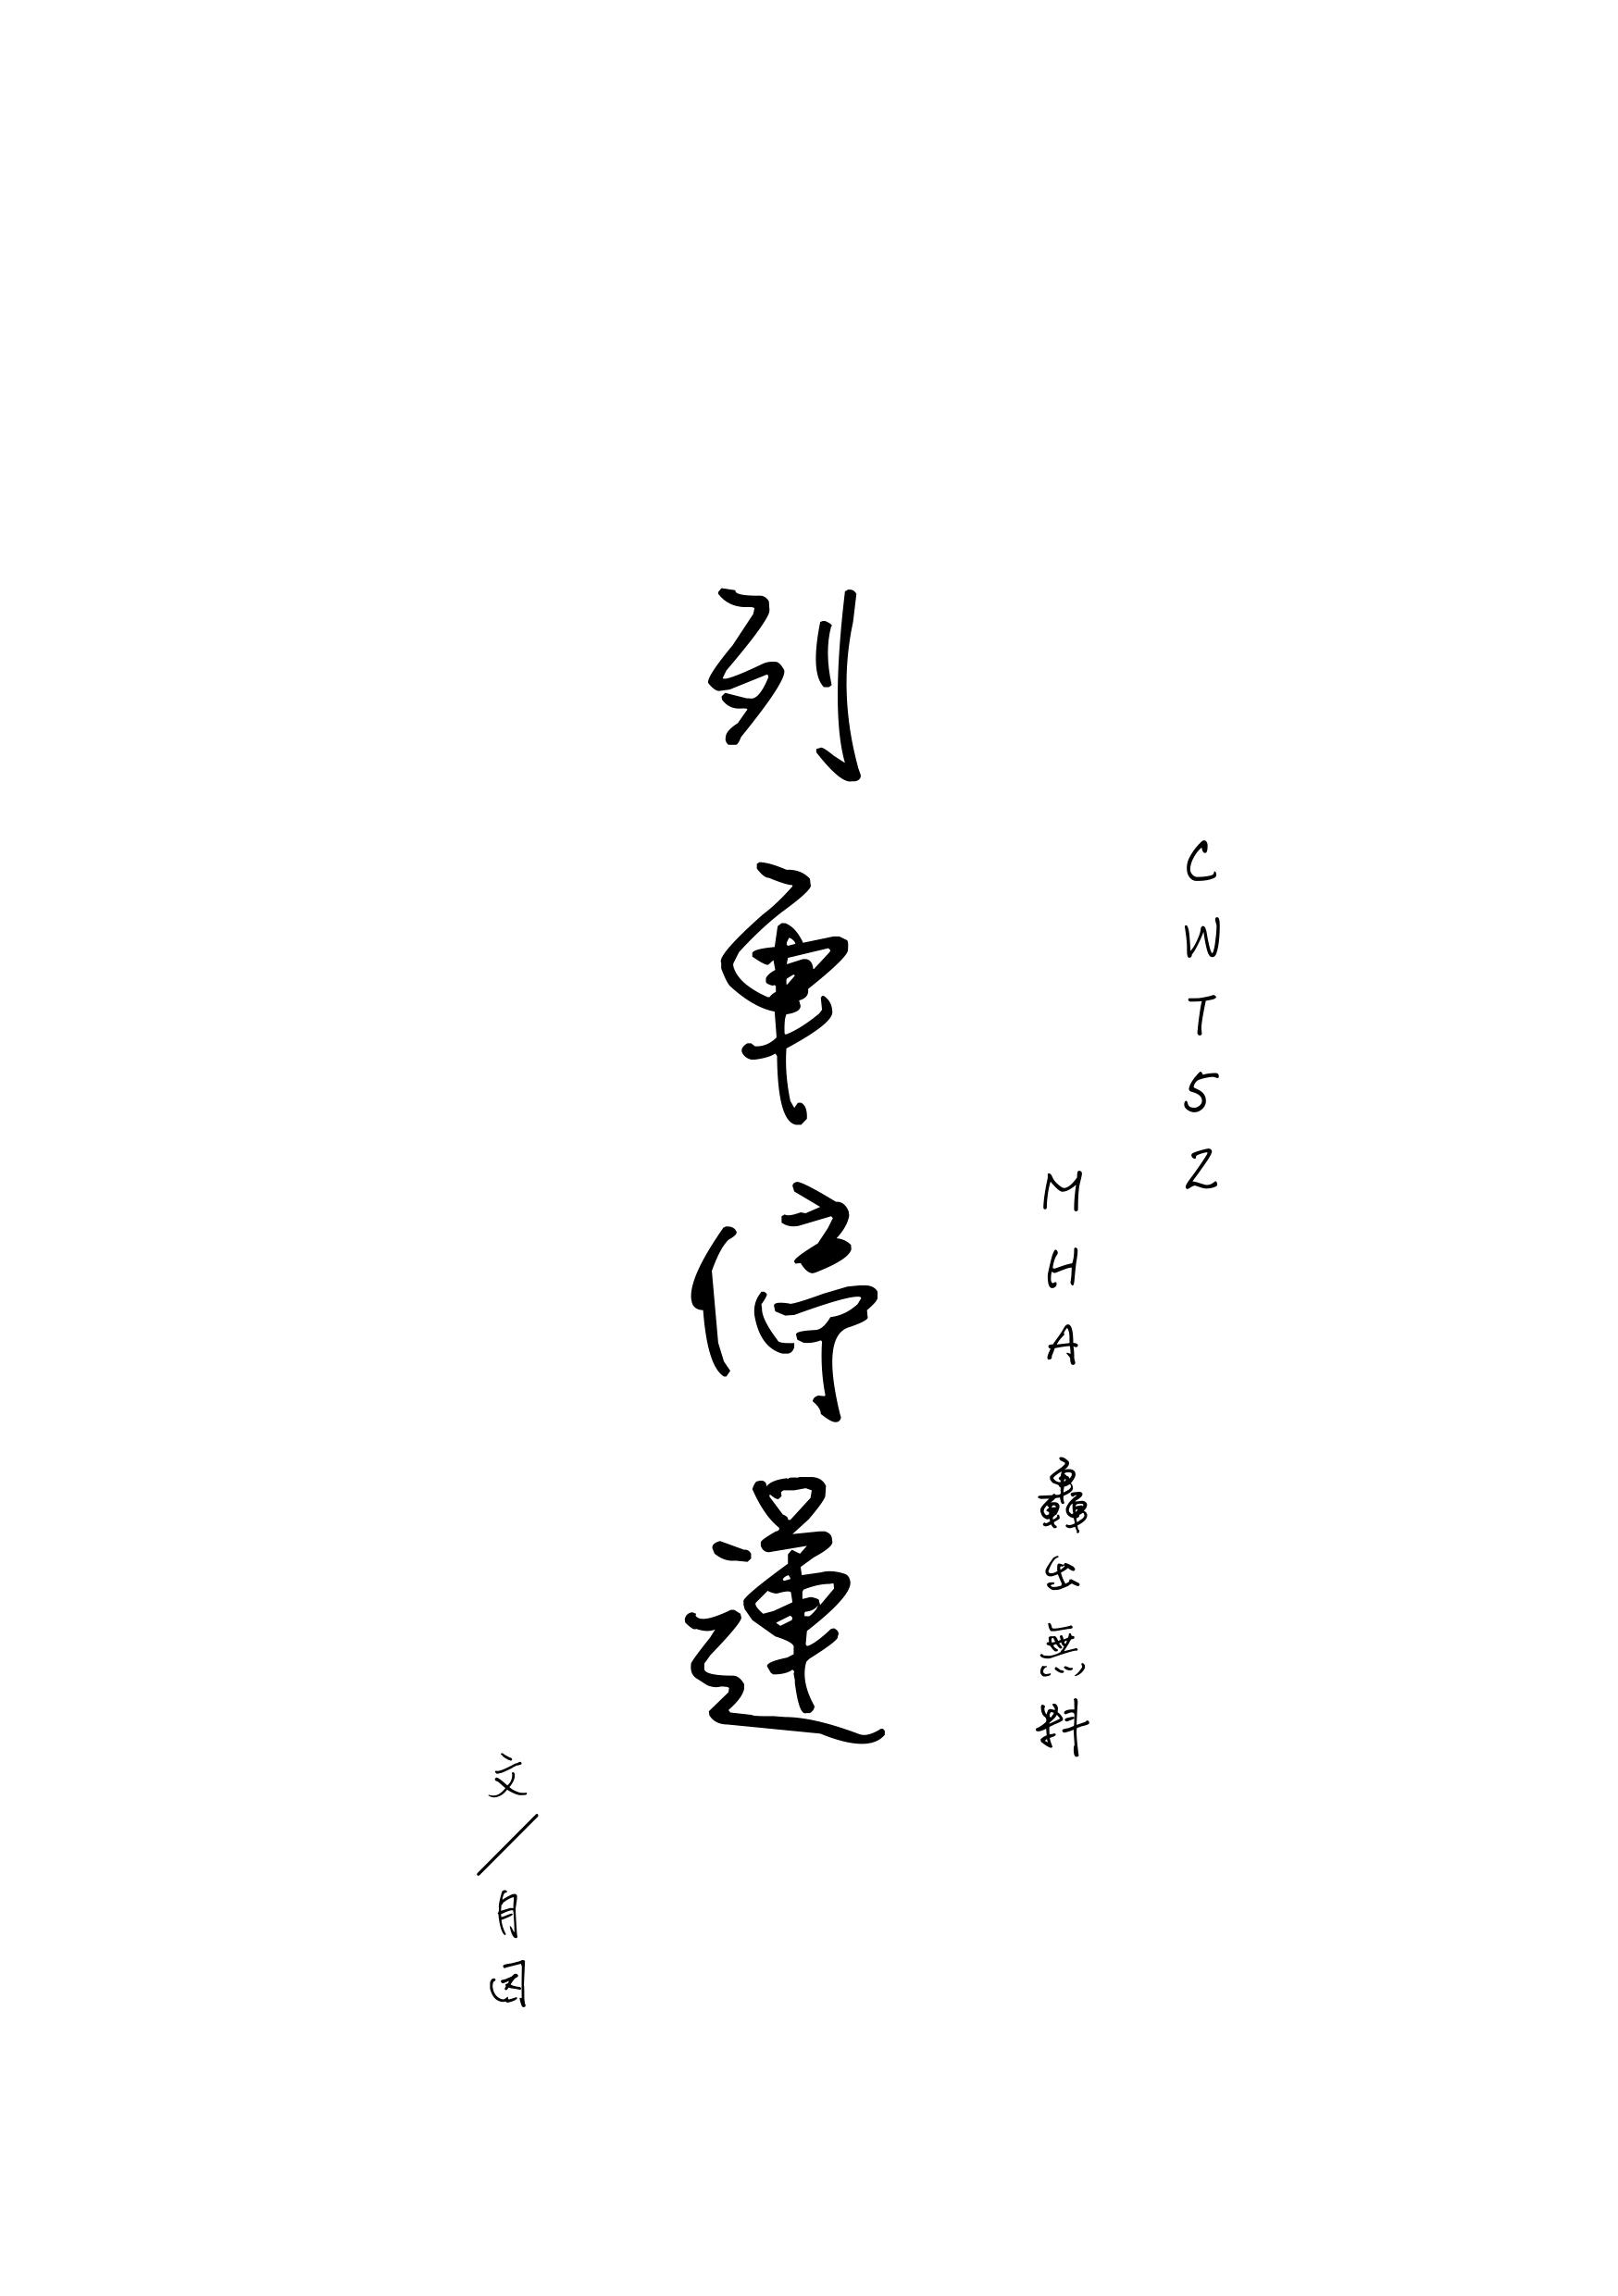 CWT52
MHA 轟出無料
列車停運
文／月囝